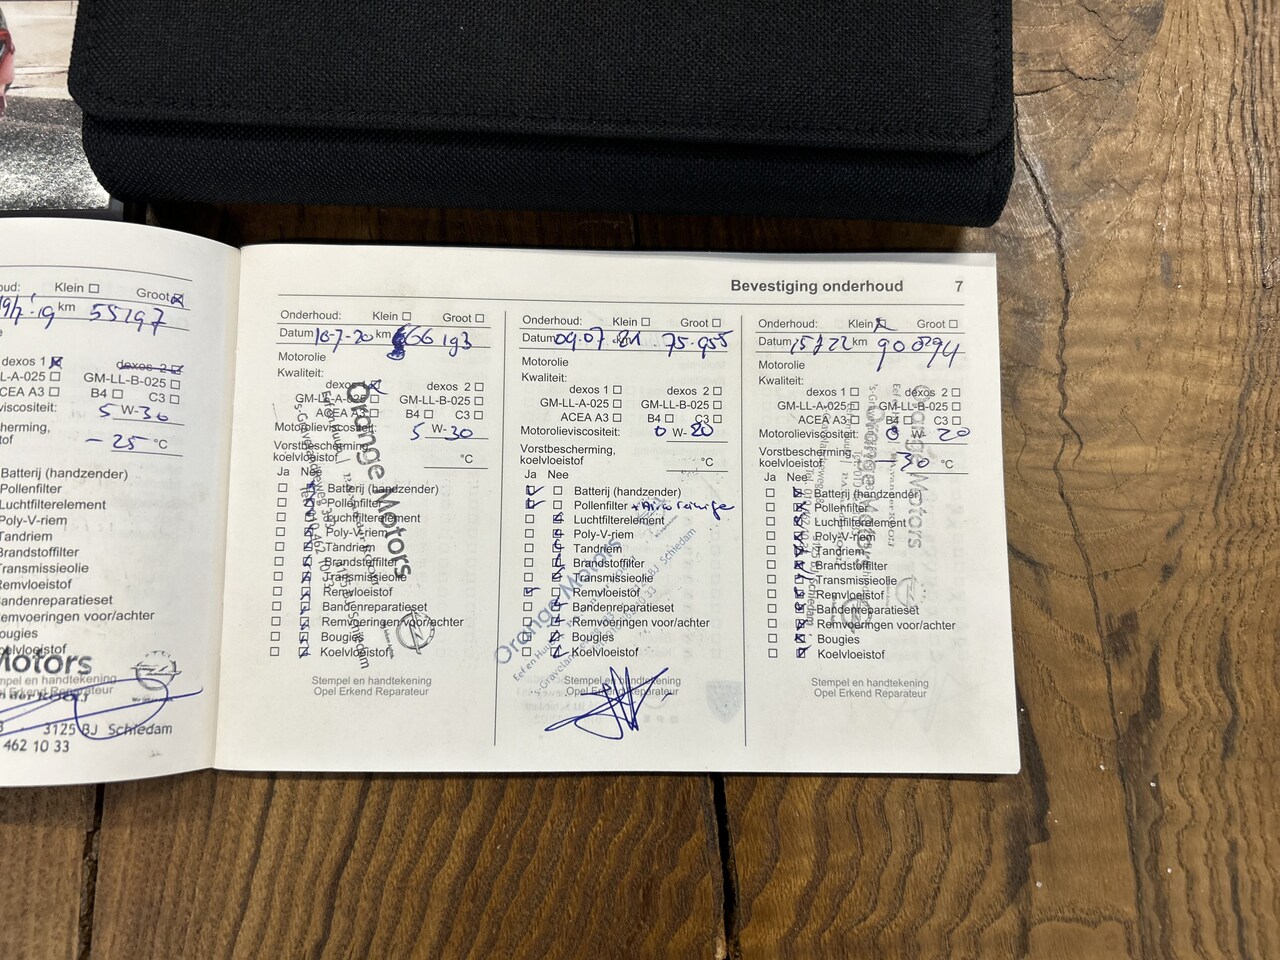 Klein ☐ Groot ☒
km 55197
dexos 1 ☒ dexos 2
GM-LL-B-025 ☐
ACEA A3 ☐ B4 ☐ C3 ☐
5 W-30
- 25 °C
Batterij (handzender)
Pollenfilter
Luchtfilterelement
Poly-V-riem
Tandriem
Brandstoffilter
Transmissieolie
Remvloeistof
Bandenreparatieset
Remvoeringen voor/achter
Bougies
Koelvloeistof
Motors
Stempel en handtekening
Opel Erkend Reparateur
3125 BJ Schiedam
462 10 33
Bevestiging onderhoud 7
Onderhoud: Klein ☐ Groot ☐
Datum 16-7-20 km 66 193
Motorolie
Kwaliteit:
dexos 1 ☒ dexos 2 ☐
GM-LL-A-025 GM-LL-B-025 ☐
ACEA A3 ☐ B4 ☐ C3 ☐
Motorolieviscositeit: 5 W-30
Vorstbescherming,
koelvloeistof °C
Ja Nee
Batterij (handzender)
Pollenfilter
Luchtfilterelement
Poly-V-riem
Tandriem
Brandstoffilter
Transmissieolie
Remvloeistof
Bandenreparatieset
Remvoeringen voor/achter
Bougies
Koelvloeistof
Orange Motors
3125 BJ Schiedam
Stempel en handtekening
Opel Erkend Reparateur
Onderhoud: Klein ☐ Groot ☐
Datum 09.07 21 75.955
Motorolie
Kwaliteit:
dexos 1 ☐ dexos 2 ☐
GM-LL-A-025 ☐ GM-LL-B-025 ☐
ACEA A3 ☐ B4 ☐ C3 ☐
Motorolieviscositeit: 0 W-20
Vorstbescherming,
koelvloeistof °C
Ja Nee
Batterij (handzender)
Pollenfilter + Airco
Luchtfilterelement
Poly-V-riem
Tandriem
Brandstoffilter
Transmissieolie
Remvloeistof
Bandenreparatieset
Remvoeringen voor/achter
Bougies
Koelvloeistof
Orange Motors
BJ Schiedam
Stempel en handtekening
Opel Erkend Reparateur
Onderhoud: Klein Groot ☐
Datum km
Motorolie
Kwaliteit:
dexos 1 ☐ dexos 2 ☐
GM-LL-A-025 ☐ GM-LL-B-025 ☐
ACEA A3 ☐ B4 ☐ C3 ☐
Motorolieviscositeit: 0 W- 20
Vorstbescherming,
koelvloeistof -30 °C
Ja Nee
Batterij (handzender)
Pollenfilter
Luchtfilterelement
Poly-V-riem
Tandriem
Brandstoffilter
Transmissieolie
Remvloeistof
Bandenreparatieset
Remvoeringen voor/achter
Bougies
Koelvloeistof
Orange Motors
Stempel en handtekening
Opel Erkend Reparateur